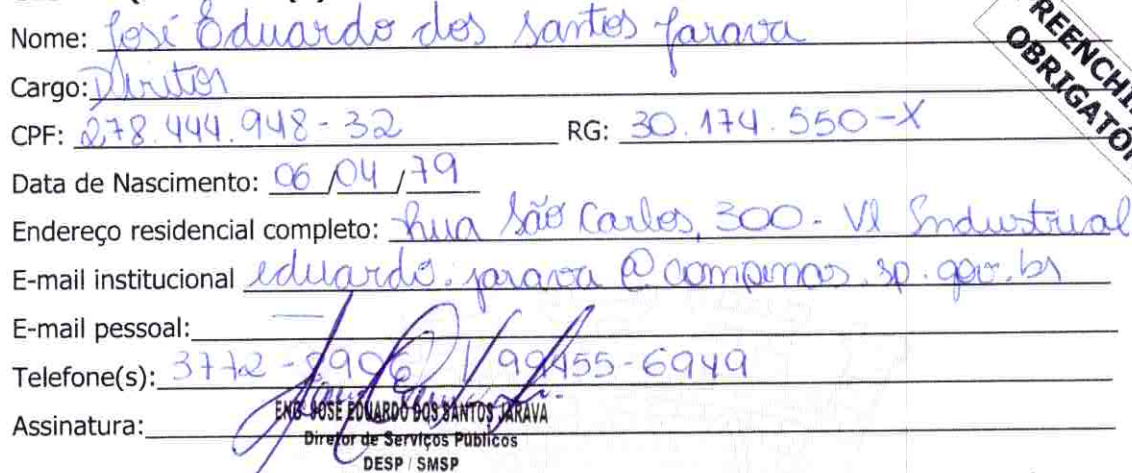 Nome: José Eduardo dos Santos Jarava
Cargo: Diretor
CPF: 278.444.948-32 RG: 30.174.550-X
Data de Nascimento: 06/04/79
Endereço residencial completo: Rua São Carlos, 300 - Vl Industrial
E-mail institucional eduardo.jarava@campinas.sp.gov.br
E-mail pessoal:
Telefone(s): 3772- / 99455-6949
Assinatura:
ENG JOSE EDUARDO DOS SANTOS JARAVA
Diretor de Serviços Públicos
DESP / SMSP